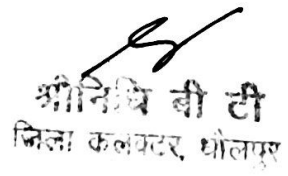 श्रीनिधि बी टी
जिला कलक्टर, धौलपुर